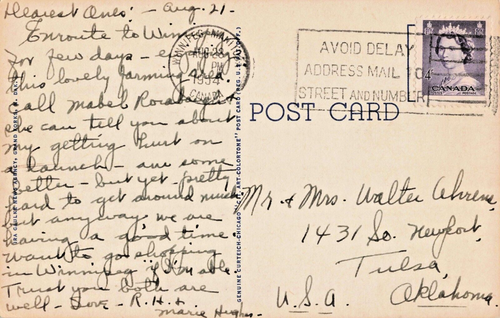 Dearest Ones: - Aug. 21 -
Enroute to Winn
for few days -
this lovely farming area
Call Mabel
she can tell you about
my getting hurt on
a launch - am some
better - but yet pretty
hard to get around much
but anyway we are
having a good time.
Want to go shopping
in Winnipeg if I'm able.
Trust you both are
well - Love - R.H. &
Marie Hughes -
WINNIPEG MANITOBA
AUG 23
PM
1954
CANADA
AVOID DELAY
ADDRESS MAIL TO
STREET AND NUMBER
CANADA
POST CARD
GENUINE CURTEICH-CHICAGO "C.T. ART-COLORTONE" POST CARD (REG. U.S. PAT. OFF.)
Mr. & Mrs. Walter Ahrens
1431 So. Newport,
Tulsa,
Oklahoma.
U.S.A.